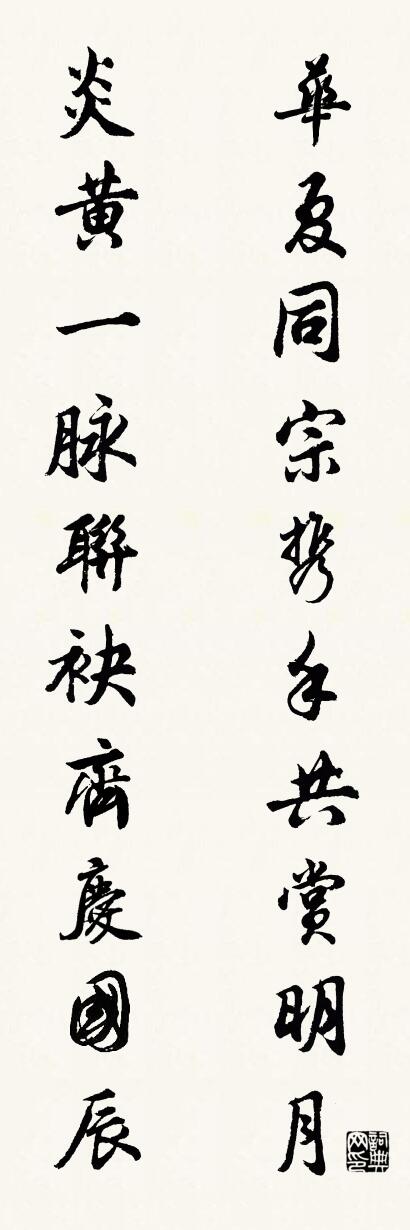 華夏同宗携手共賞明月
炎黄一脉聯袂齊慶國辰
詞典網印